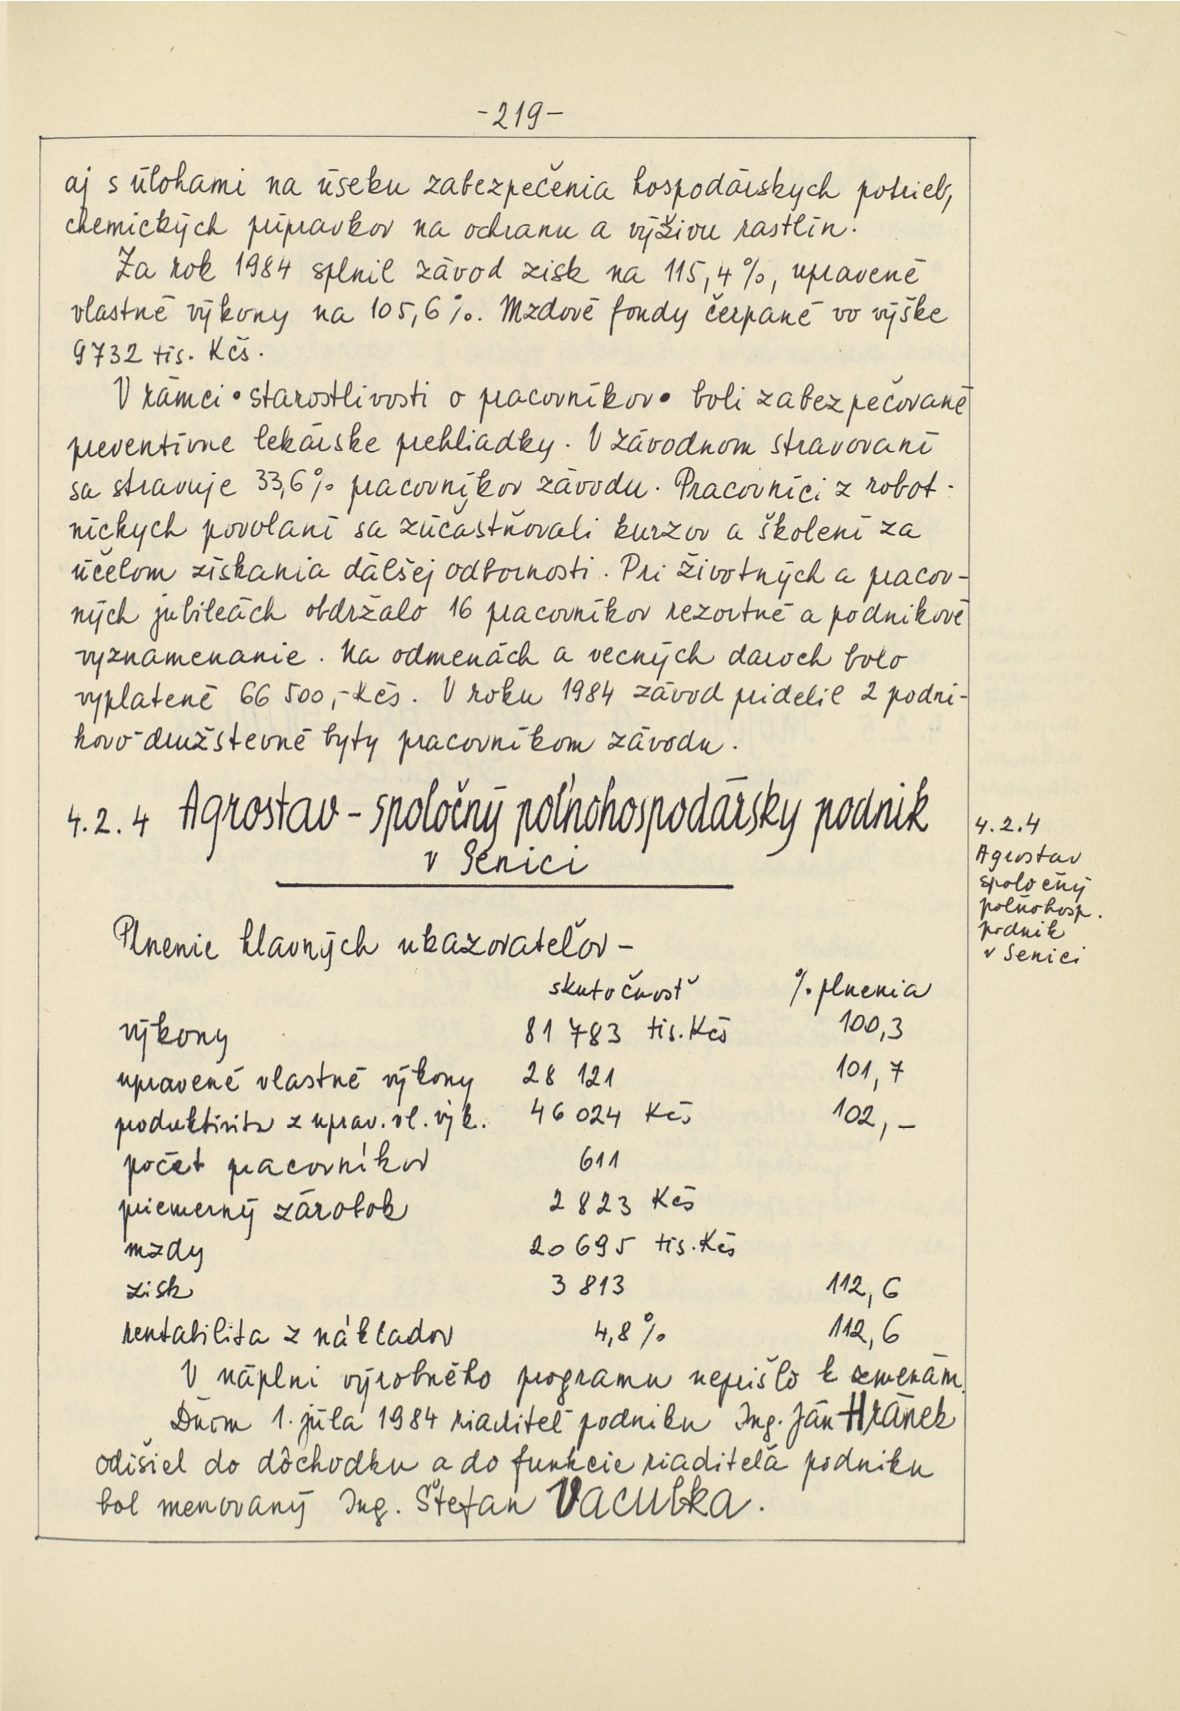 -219-
aj s úlohami na úseku zabezpečenia hospodárskych potrieb,
chemických prípravkov na ochranu a výživu rastlín.
Za rok 1984 splnil závod zisk na 115,4%, upravené
vlastné výkony na 105,6%. Mzdové fondy čerpané vo výške
9732 tis. Kčs.
V rámci • starostlivosti o pracovníkov • boli zabezpečované
preventívne lekárske prehliadky. V závodnom stravovaní
sa stravuje 33,6% pracovníkov závodu. Pracovníci z robot-
níckych povolaní sa zúčastňovali kurzov a školení za
účelom získania ďalšej odbornosti. Pri životných a pracov-
ných jubileách obdržalo 16 pracovníkov rezortné a podnikové
vyznamenanie. Na odmenách a vecných daroch bolo
vyplatené 66 500,- Kčs. V roku 1984 závod pridelil 2 podni-
kovo-družstevné byty pracovníkom závodu.
4.2.4 Agrostav - spoločný poľnohospodársky podnik
v Senici
4.2.4
Agrostav
spoločný
poľnohosp.
podnik
v Senici
Plnenie hlavných ukazovateľov -
skutočnosť % plnenia
výkony 81 783 tis. Kčs 100,3
upravené vlastné výkony 28 121 101,7
produktivita z uprav. vl. výk. 46 024 Kčs 102,-
počet pracovníkov 611
priemerný zárobok 2 823 Kčs
mzdy 20 695 tis. Kčs
zisk 3 813 112,6
rentabilita z nákladov 4,8% 112,6
V náplni výrobného programu neprišlo k zmenám.
Dňom 1. júla 1984 riaditeľ podniku Ing. Ján Hránek
odišiel do dôchodku a do funkcie riaditeľa podniku
bol menovaný Ing. Štefan Vaculka.